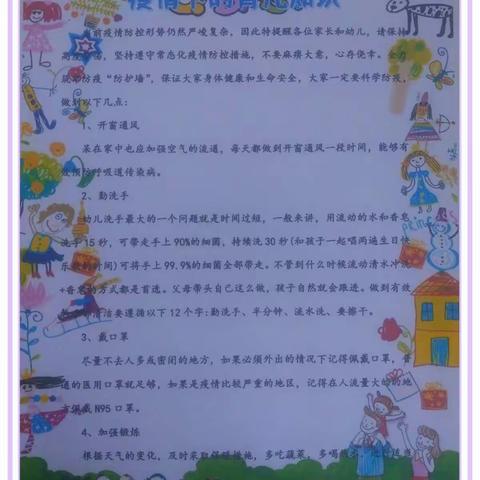 疫情下的育儿知识
当前疫情防控形势仍然严峻复杂，因此特提醒各位家长和幼儿，请保持
高度警惕，坚持遵守常态化疫情防控措施，不要麻痹大意，心存侥幸。全力
筑牢防疫“防护墙”，保证大家身体健康和生命安全，大家一定要科学防疫，
做到以下几点：
1、开窗通风
呆在家中也应加强空气的流通，每天都做到开窗通风一段时间，能够有
效预防呼吸道传染病。
2、勤洗手
幼儿洗手最大的一个问题就是时间过短，一般来讲，用流动的水和香皂
洗手15秒，可带走手上90%的细菌，持续洗30秒(和孩子一起唱两遍生日快
乐歌的时间)可将手上99.9%的细菌全部带走。不管到什么时候流动清水冲洗
+香皂的方式都是首选。父母带头自己这么做，孩子自然就会跟进。做到有效
清洁要遵循以下12个字:勤洗手、半分钟、流水洗、要擦干。
3、戴口罩
尽量不去人多或密闭的地方，如果必须外出的情况下记得佩戴口罩，普
通的医用口罩就足够，如果是疫情比较严重的地区，记得在人流量大的的地
方佩戴N95口罩。
4、加强锻炼
根据天气的变化，及时采取保暖措施，多吃蔬菜，多喝